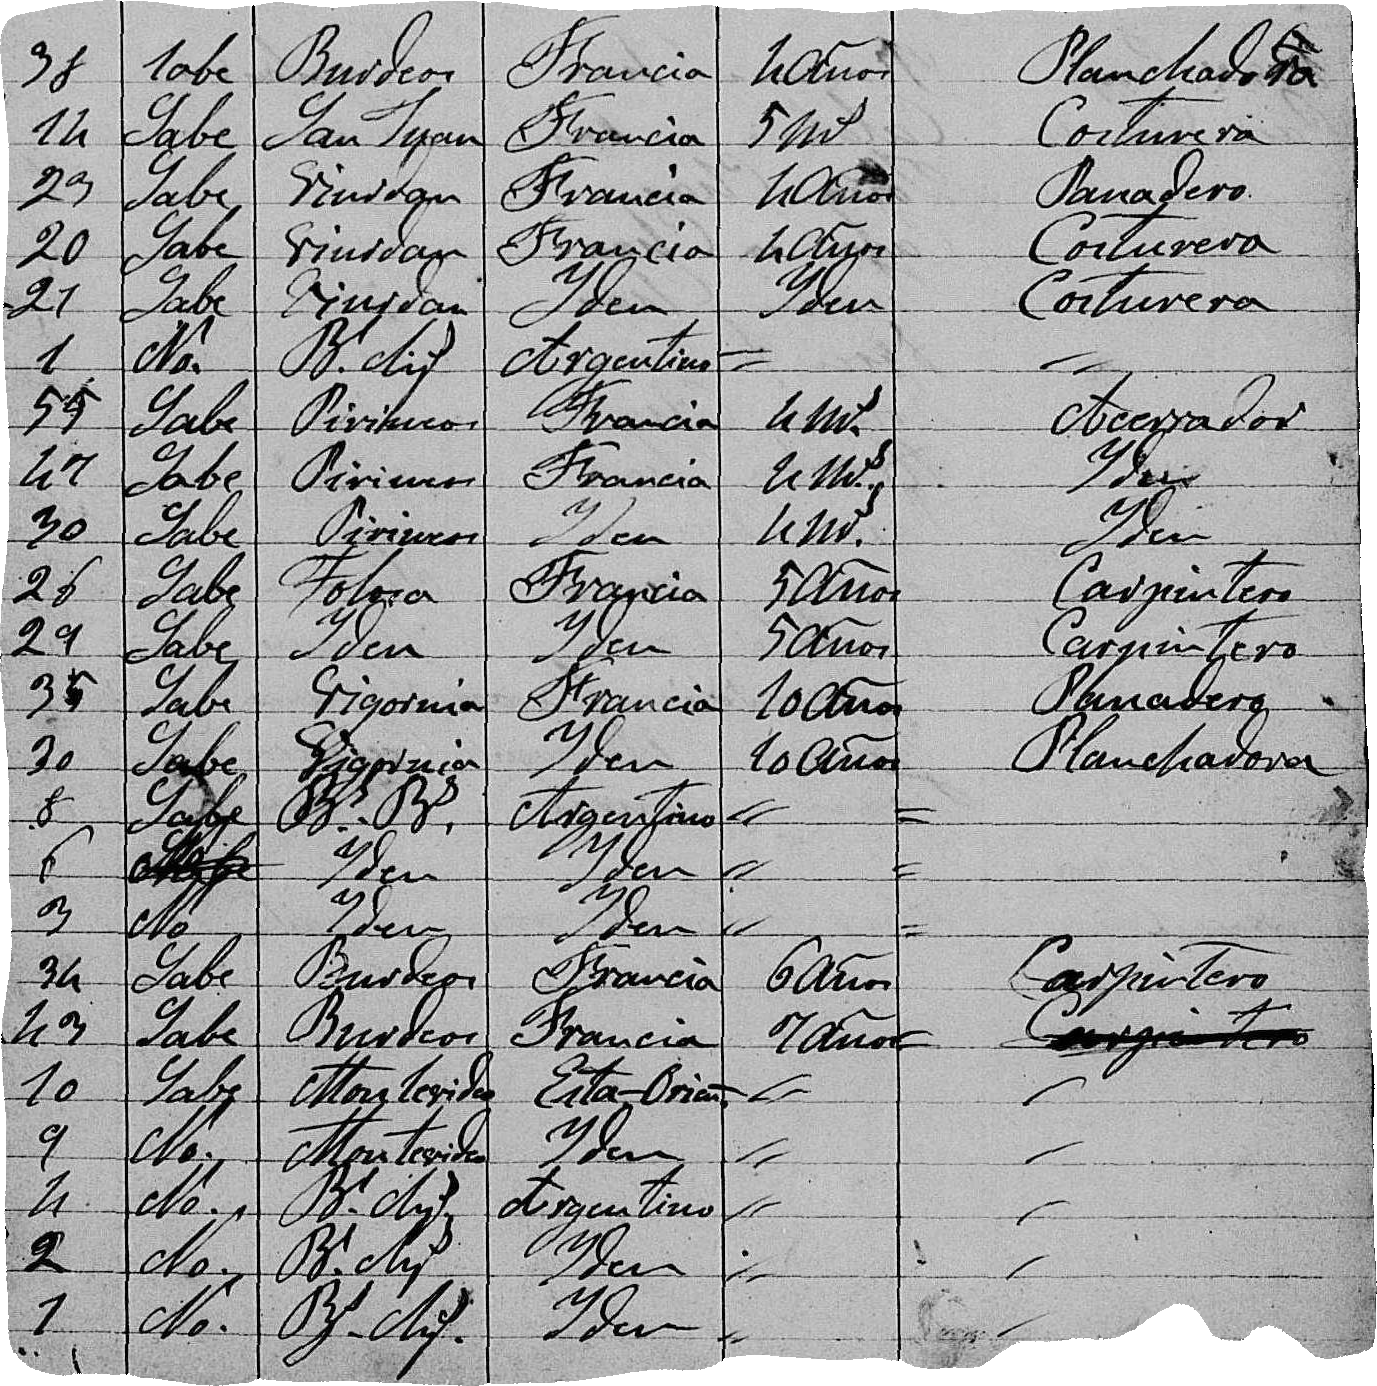 38 Sabe Burdeos Francia 4 Años Planchadora
14 Sabe San Juan Francia 5 Ms Costurera
23 Sabe Francia 4 Años Panadero
20 Sabe Francia 4 Años Costurera
21 Sabe Yden Yden Costurera
1 No. Bs. Ays Argentino = "
55 Sabe Pirineos Francia 4 Ms. Acerrador
47 Sabe Pirineos Francia 4 Ms. Yden
30 Sabe Pirineos Yden 4 Ms. Yden
26 Sabe Tolosa Francia 5 Años Carpintero
29 Sabe Yden Yden 5 Años Carpintero
35 Sabe Francia 10 Años Panadero
30 Sabe Yden 10 Años Planchadora
8 Sabe Argentino " =
6 No Yden Yden " =
3 No Yden Yden " =
34 Sabe Burdeos Francia 6 Años Carpintero
43 Sabe Burdeos Francia 7 Años Carpintero
10 Sabe Montevideo Esta-Orien. " "
9 No. Montevideo Yden " "
4 No. Bs. Ays. Argentino " "
2 No. Bs. Ays Yden " "
1 No. Bs. Ays. Yden " "